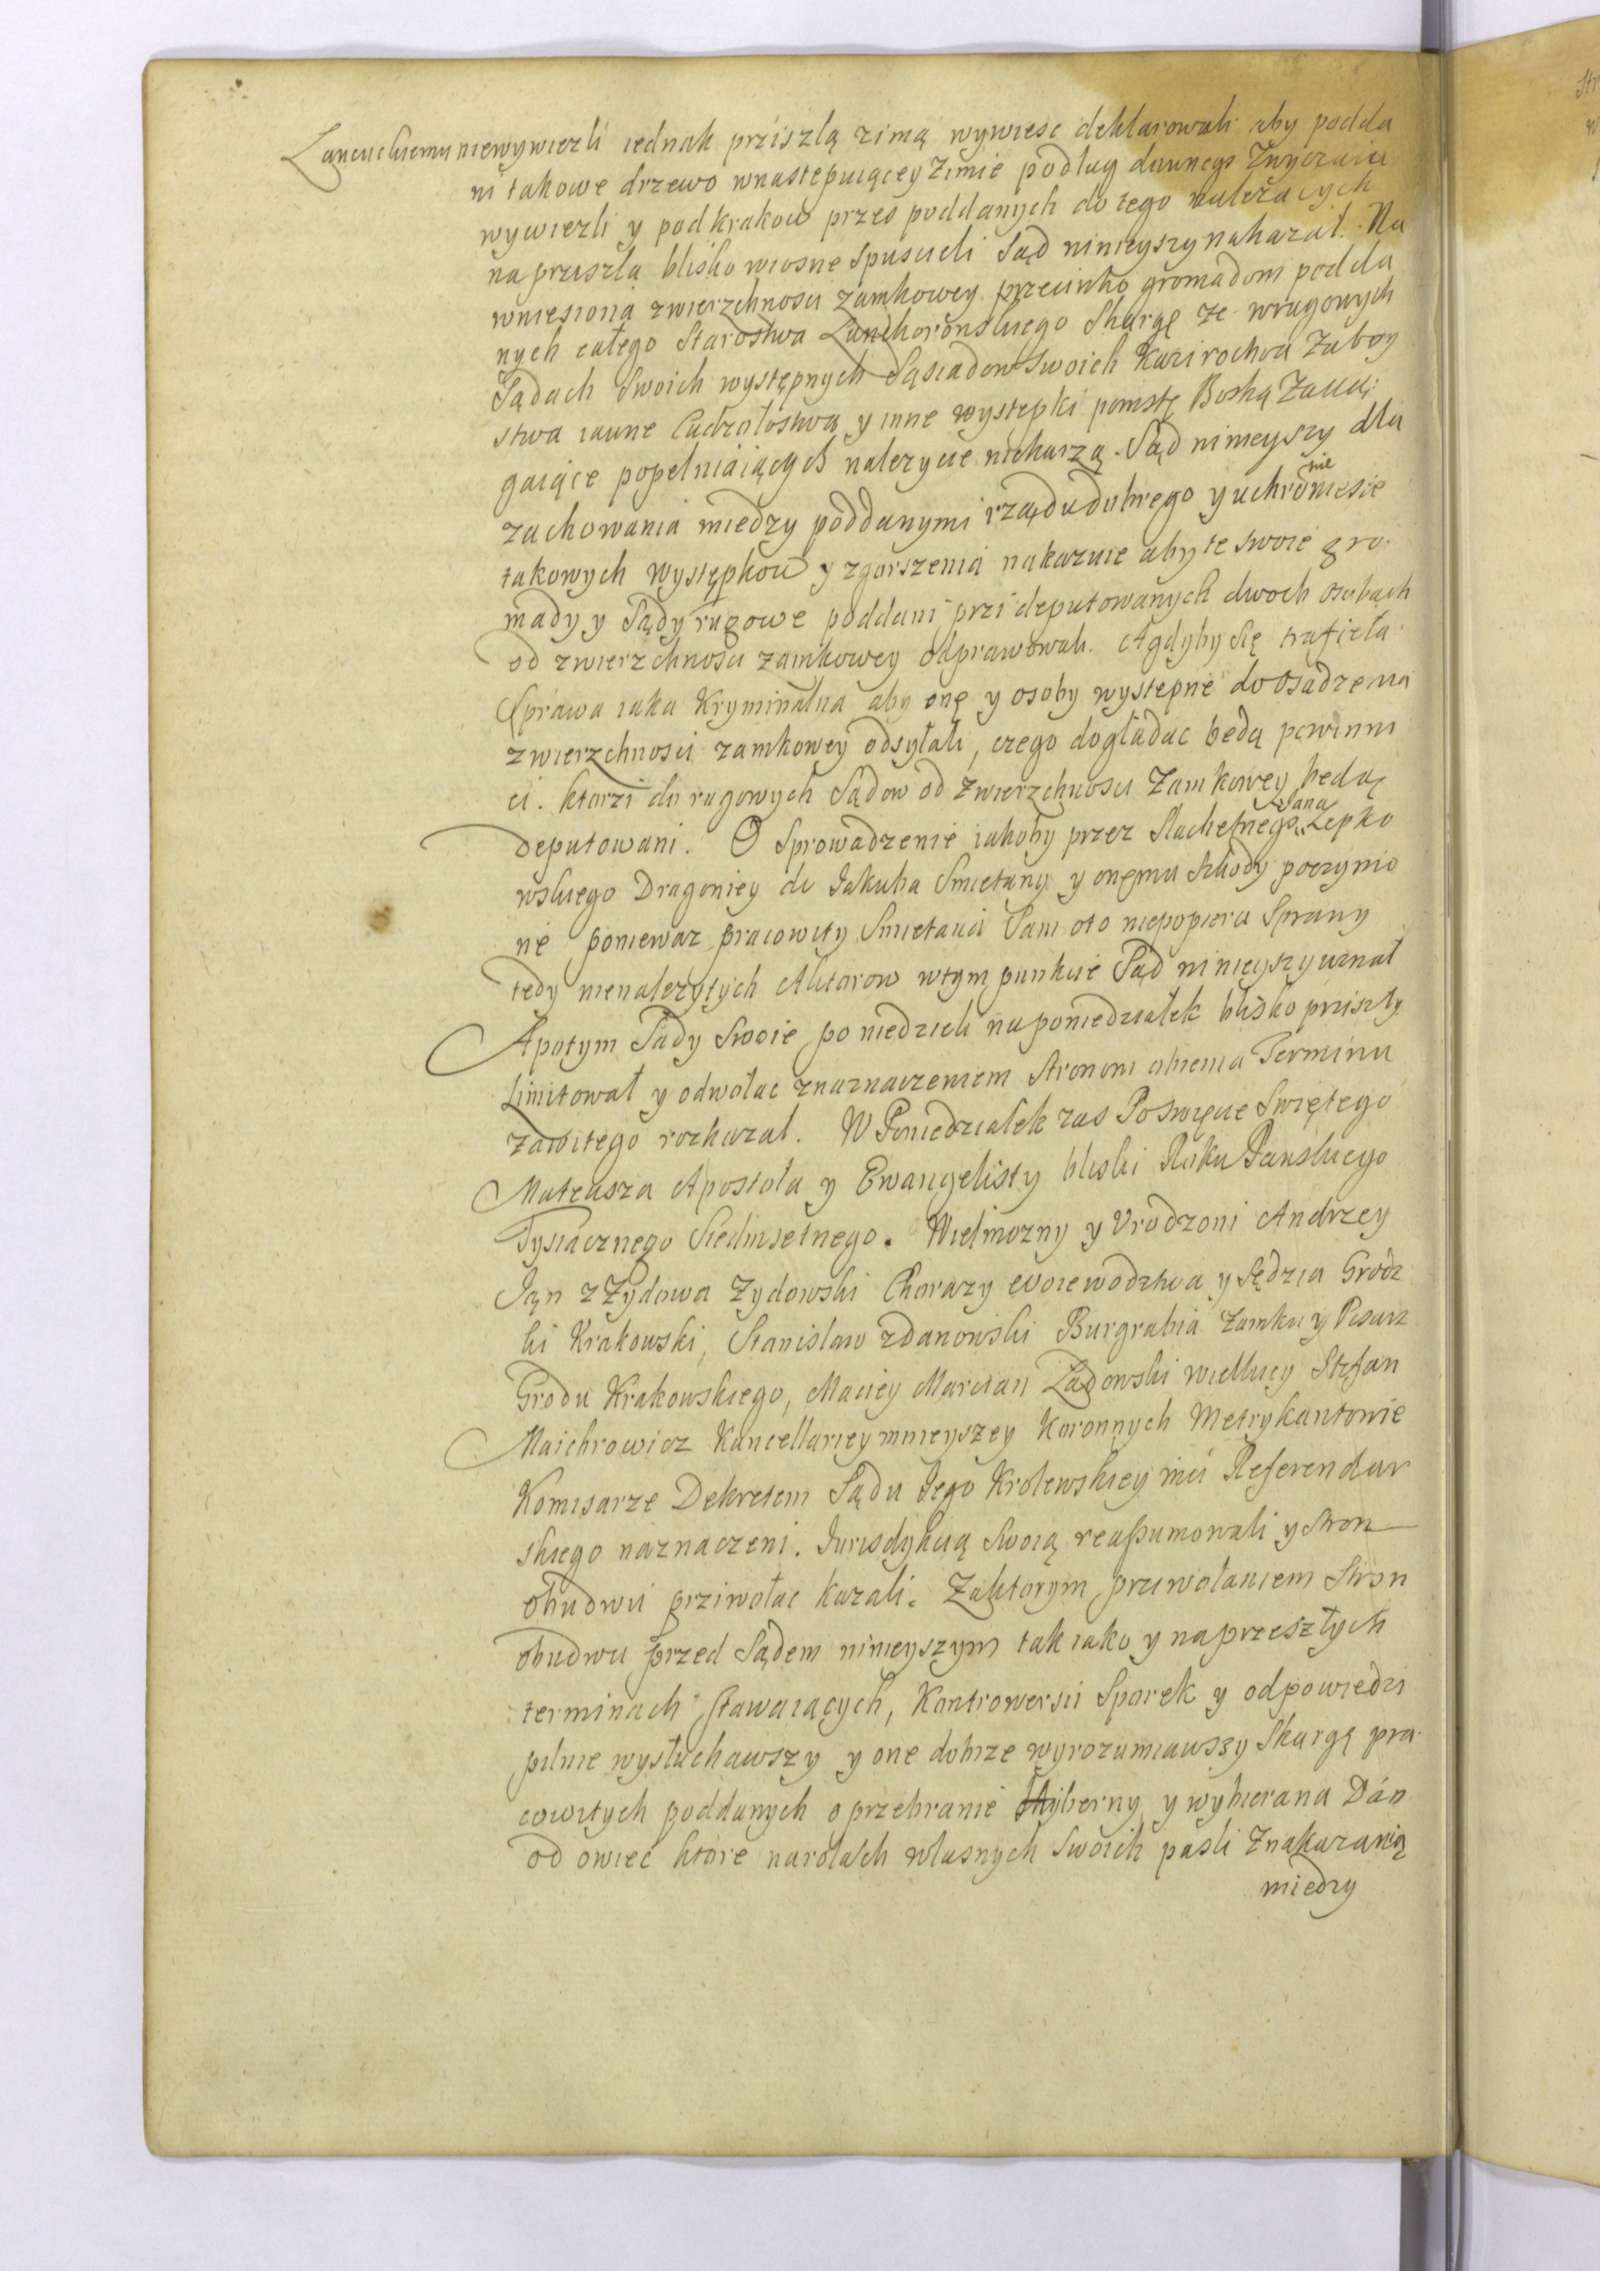 Lancuckiemu niewywiezli iednak prziszlą zimą wywiesc deklarowali aby podda
ni takowe drzewo wnastepuiącey Zimie podług dawnego Zwyczaiu
wywiezli y pod Krakow przes poddanych do tego należących
na przyszla blisko wiosne spuscieli Sąd ninieyszy nakazał. Na
wniesioną zwierzchnosci zamkowey przeciwko gromadom podda
nych całego Starostwa Lanckoronskiego Skargę ze wrugowych
Sądach Swoich występnych Sąsiadow Swoich Kaziroctwa Zaboy
stwa iawne Cudzołostwa y inne występki pomstę Boską Zacią:
gaiące popełniaiących nalezycie niekarzą. Sąd ninieyszy dla
zachowania miedzy poddanymi rządu dobrego y uchronienie sie
takowych występkow y zgorszenia nakazuie aby te swoie gro
mady y Sądy rugowe poddani przi deputowanych dwoch osobach
od zwierzchnosci zamkowey odprawowali. Agdyby się trafieła
Sprawa iaka Kryminalna aby onę y osoby występne do osądzenia
zwierzchnosci zamkowey odsyłali, czego dogladac będą powinni
ci. ktorzi do rugowych Sądow od Zwierzchnosci Zamkowey będą
deputowani. O Sprowadzenie iakoby przez Slachetnego Jana Zepko
wskiego Dragoniey do Jakuba Smietany y onemu szkody poczynio
ne poniewaz pracowity Smietana Sam oto niepopiera Sprawy
tedy nienalezytych Aktorow wtym punkcie Sąd ninieyszy uznał
Apotym Sądy Swoie po niedzieli na poniedziałek blisko przyszły
Limitował y odwołac znaznaczeniem stronom obiema Terminu
zawitego rozkazał. W Poniedziałek zas Po Swięcie Swiętego
Mateusza Apostoła y Ewangelisty bliski Roku Panskiego
Tysiącznego Siedmsetnego. Wielmozny y Urodzoni Andrzey
Jąn z Zydowa Zydowski Chorazy woiewodztwa y Sędzia Grodz
ki Krakowski, Stanisław zdanowski Burgrabia Zamku y Pisarz
Grodu Krakowskiego, Maciey Marcian Ladowski wielkiey Stefan
Maichrowicz Kancellariey mnieyszey Koronnych Metrykantowie
Komisarze Dekretem Sądu Jego Krolewskiey mci Referendar
skiego naznaczeni. Jurisdykcią Swoią reassumowali y Stron
obudwu prziwołac kazali. Zaktorym przywołaniem Stron
obudwu przed Sądem ninieyszym tak iako y naprzeszłych
terminach stawaiących, Kontrowersii Sporek y odpowiedzi
pilnie wysłuchawszy y one dobrze wyrozumiawszy Skargę pra
cowitych poddanych o przebranie Hyberny y wybierana Dán
od owiec ktore narolach własnych Swoich pasli Znakazanią
miedzy